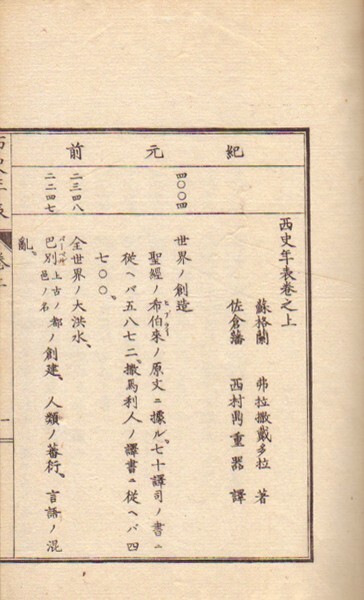 紀元前
西史年表卷之上
蘇格蘭 弗拉撒戴多拉 著
佐倉藩 西村鼎重器 譯
四〇〇四
世界ノ創造
聖經ノ希伯來ノ原文ニ據ル、七十譯司ノ書ニ
ヒブリウ
從ヘバ五八七二、撒馬利人ノ譯書ニ從ヘバ四
七〇〇
二三四八
全世界ノ大洪水、
二二四七
巴別上古ノ都邑ノ名ノ創建、人類ノ蕃衍、言語ノ混
亂、
西史年表
卷上
一